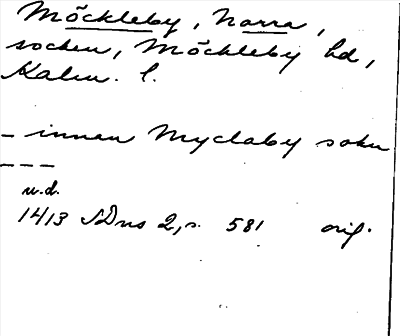 Möckleby, Norra,
socken, Möckleby hd,
Kalm. l.
- innan Myclaby sokn
- - -
u.d.
1413 SDns 2, s. 581 orig.